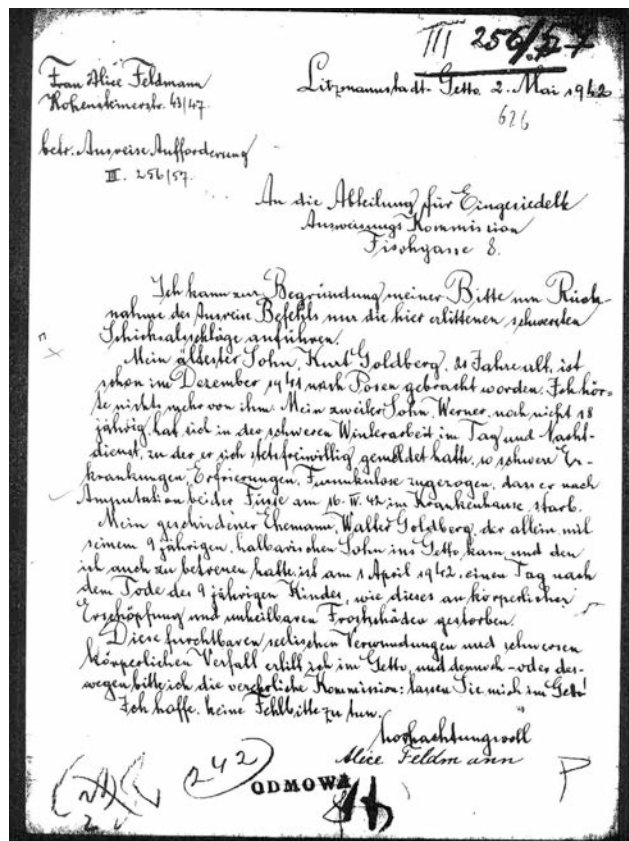 III 256/57
Frau Alice Feldmann
Hohensteinerstr. 43/47.
Litzmannstadt-Getto 2. Mai 1942
626
betr. Ausreise Aufforderung
III. 256/57.
An die Abteilung für Eingesiedelte
Ausweisungs Kommission
Fischgasse 8.
Ich kann zur Begründung meiner Bitte um Rück-
nahme des Ausreise Befehls nur die hier erlittenen schwersten
Schicksalsschläge anführen.
Mein ältester Sohn, Kurt Goldberg, 21 Jahre alt, ist
schon im Dezember 1941 nach Posen gebracht worden. Ich hör-
te nichts mehr von ihm. Mein zweiter Sohn, Werner, noch nicht 18
jährig, hat sich in der schweren Winterarbeit im Tag und Nacht-
dienst, zu der er sich stets freiwillig gemeldet hatte, so schwere Er-
krankungen, Erfrierungen, Furunkulose zugezogen, dass er nach
Amputation beider Füsse am 16. IV. 42 im Krankenhause starb.
Mein geschiedener Ehemann, Walter Goldberg, der allein mit
seinem 9 jährigen, halbarischen Sohn ins Getto kam und den
ich auch zu betreuen hatte, ist am 1 April 1942, einen Tag nach
dem Tode des 9 jährigen Kindes, wie dieses an körperlicher
Erschöpfung und unheilbaren Frostschäden gestorben.
Diese furchtbaren seelischen Verwundungen und schweren
körperlichen Verfall erlitt ich im Getto, und dennoch - oder des-
wegen bitte ich die verehrliche Kommission: lassen Sie mich im Getto!
Ich hoffe, keine Fehlbitte zu tun.
hochachtungsvoll
Alice Feldmann
242
ODMOWA
P